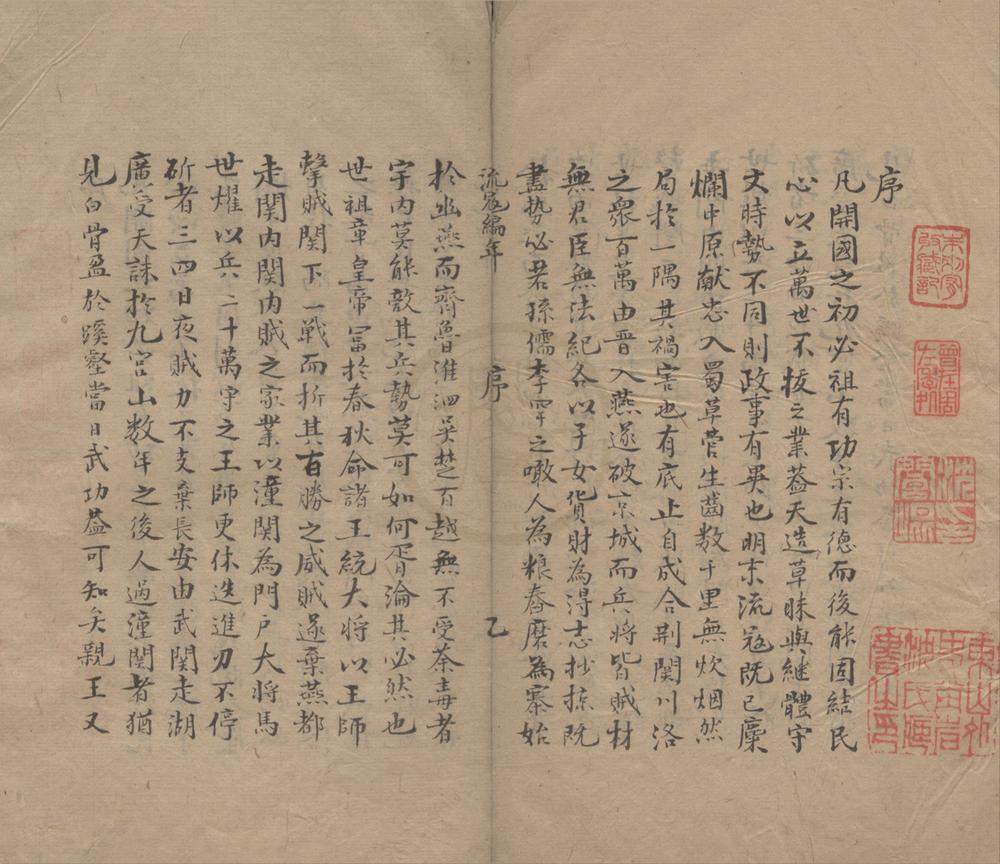 序
凡開國之初必祖有功宗有德而後能固結民
心以立萬世不拔之業葢天造草昧與継體守
文時勢不同則政事有異也明末流寇既已糜
爛中原献忠入蜀草菅生齒数千里無炊烟然
局於一隅其禍害也有底止自成合荆関川洛
之衆百萬由晋入燕遂破京城而兵將皆賊材
無君臣無法紀各以子女貨財為淂志抄掠既
盡势必君孫儒李罕之噉人為粮舂磨為寨始
流寇編年 序 乙
扵幽燕而齊魯淮泗吴楚百越無不受荼毒者
宇内莫能敵其兵勢莫可如何胥淪其必然也
世祖章皇帝冨扵春秋命諸王統大將以王師
擊賊関下一戦而折其百勝之威賊遂棄燕都
走関内関内賊之家業以潼関為門戸大將馬
世燿以兵二十萬守之王師更休迭進刃不停
斫者三四日夜賊力不支棄長安由武関走湖
廣受天誅扵九宫山数年之後人過潼関者猶
見白骨盈於蹊壑當日武功葢可知矣親王又